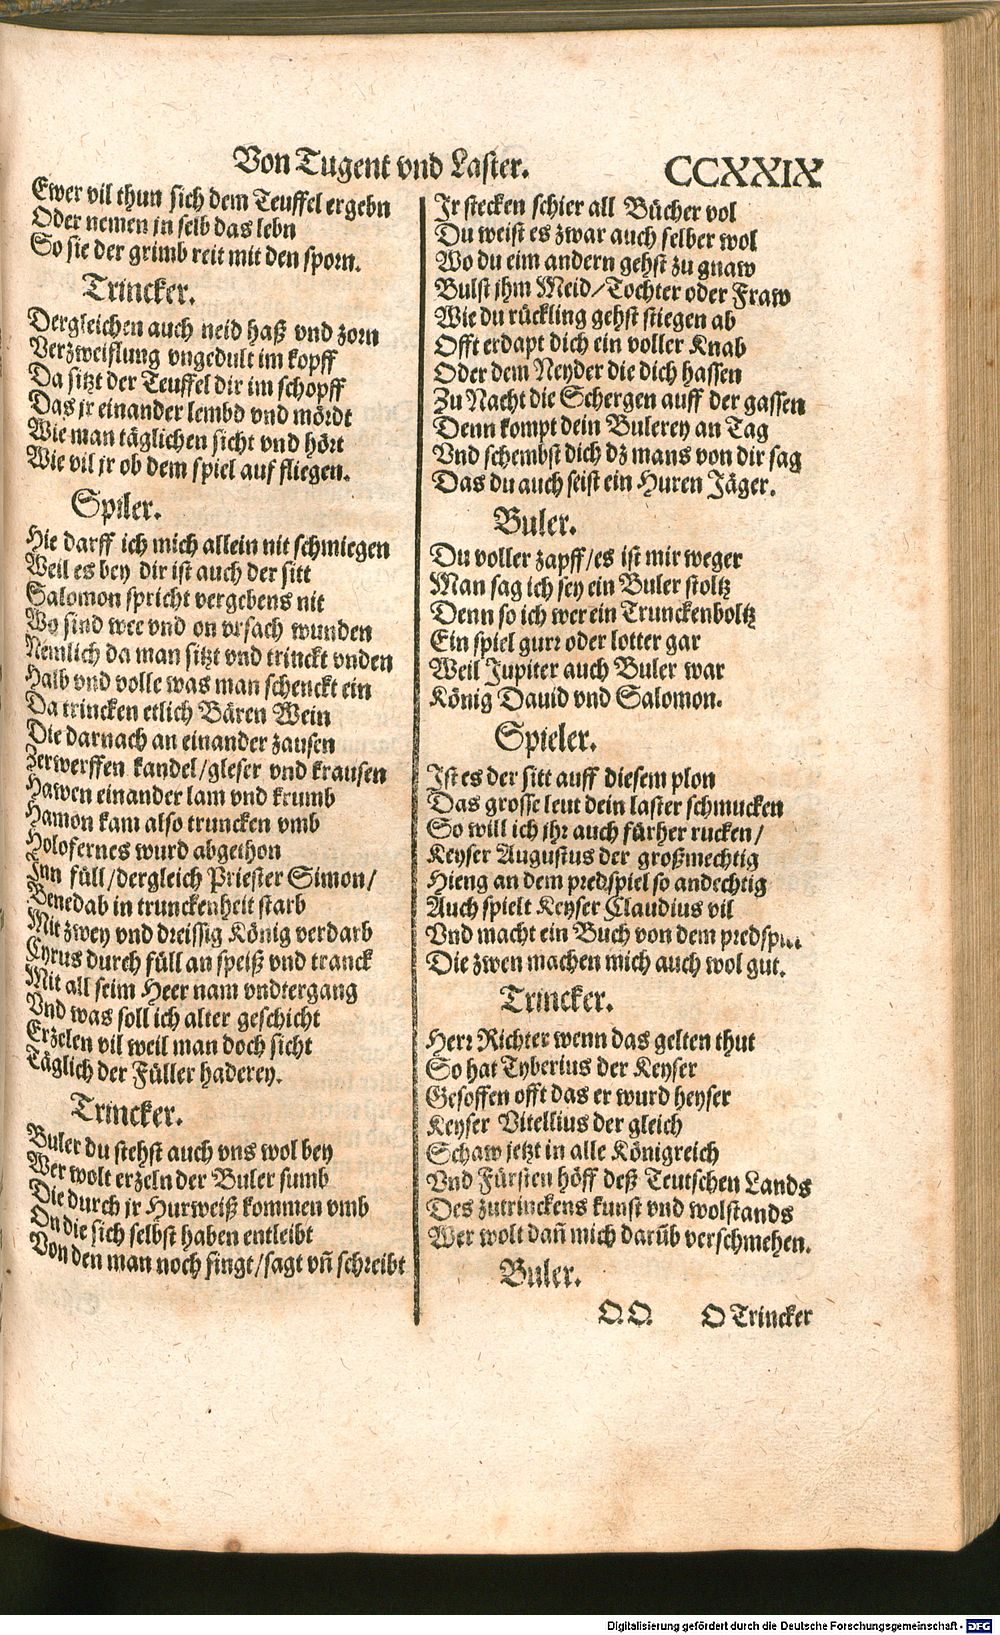 Von Tugent vnd Laster.
CCXXIX
Ewer vil thun sich dem Teuffel ergebn
Oder nemen jn selb das lebn
So sie der grimb reit mit den sporn.
Trincker.
Dergleichen auch neid haß vnd zorn
Verzweiflung vngedult im kopff
Da sitzt der Teuffel dir im schopff
Das jr einander lembd vnd mördt
Wie man täglichen sicht vnd hört
Wie vil jr ob dem spiel auf fliegen.
Spiler.
Hie darff ich mich allein nit schmiegen
Weil es bey dir ist auch der sitt
Salomon spricht vergebens nit
Wo sind wee vnd on vrsach wunden
Nemlich da man sitzt vnd trinckt vnden
Halb vnd volle was man schenckt ein
Da trincken etlich Bären Wein
Die darnach an einander zausen
Zerwerffen kandel/gleser vnd krausen
Hawen einander lam vnd krumb
Hamon kam also truncken vmb
Holofernes wurd abgethon
Inn füll/dergleich Priester Simon/
Benedab in trunckenheit starb
Mit zwey vnd dreissig König verdarb
Cyrus durch füll an speiß vnd tranck
Mit all seim Heer nam vndtergang
Vnd was soll ich alter geschicht
Erzelen vil weil man doch sicht
Täglich der Füller haderey.
Trincker.
Buler du stehst auch vns wol bey
Wer wolt erzeln der Buler sumb
Die durch jr Hurweiß kommen vmb
On die sich selbst haben entleibt
Von den man noch singt/sagt vñ schreibt
Jr stecken schier all Bücher vol
Du weist es zwar auch selber wol
Wo du eim andern gehst zu gnaw
Bulst jhm Meid/Tochter oder Fraw
Wie du rückling gehst stiegen ab
Offt erdapt dich ein voller Knab
Oder dem Neyder die dich hassen
Zu Nacht die Schergen auff der gassen
Denn kompt dein Bulerey an Tag
Vnd schembst dich dz mans von dir sag
Das du auch seist ein Huren Jäger.
Buler.
Du voller zapff/es ist mir weger
Man sag ich sey ein Buler stoltz
Denn so ich wer ein Trunckenboltz
Ein spiel gurr oder lotter gar
Weil Jupiter auch Buler war
König Dauid vnd Salomon.
Spieler.
Ist es der sitt auff diesem plon
Das grosse leut dein laster schmucken
So will ich jhr auch fürher rucken/
Keyser Augustus der großmechtig
Hieng an dem predspiel so andechtig
Auch spielt Keyser Claudius vil
Vnd macht ein Buch von dem predspil
Die zwen machen mich auch wol gut.
Trincker.
Herr Richter wenn das gelten thut
So hat Tyberius der Keyser
Gesoffen offt das er wurd heyser
Keyser Vitellius der gleich
Schaw jetzt in alle Königreich
Vnd Fürsten höff deß Teutschen Lands
Des zutrinckens kunst vnd wolstands
Wer wolt dañ mich darüb verschmehen.
Buler.
O.O. O Trincker
Digitalisierung gefördert durch die Deutsche Forschungsgemeinschaft - DFG